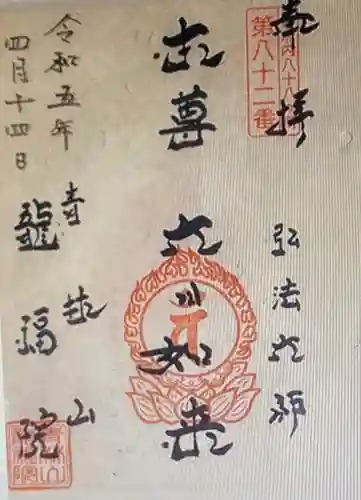 奉拝
内八十八
第八十二番
弘法大師
本尊
大日如来
青林山
龍福院
令和五年
四月十四日